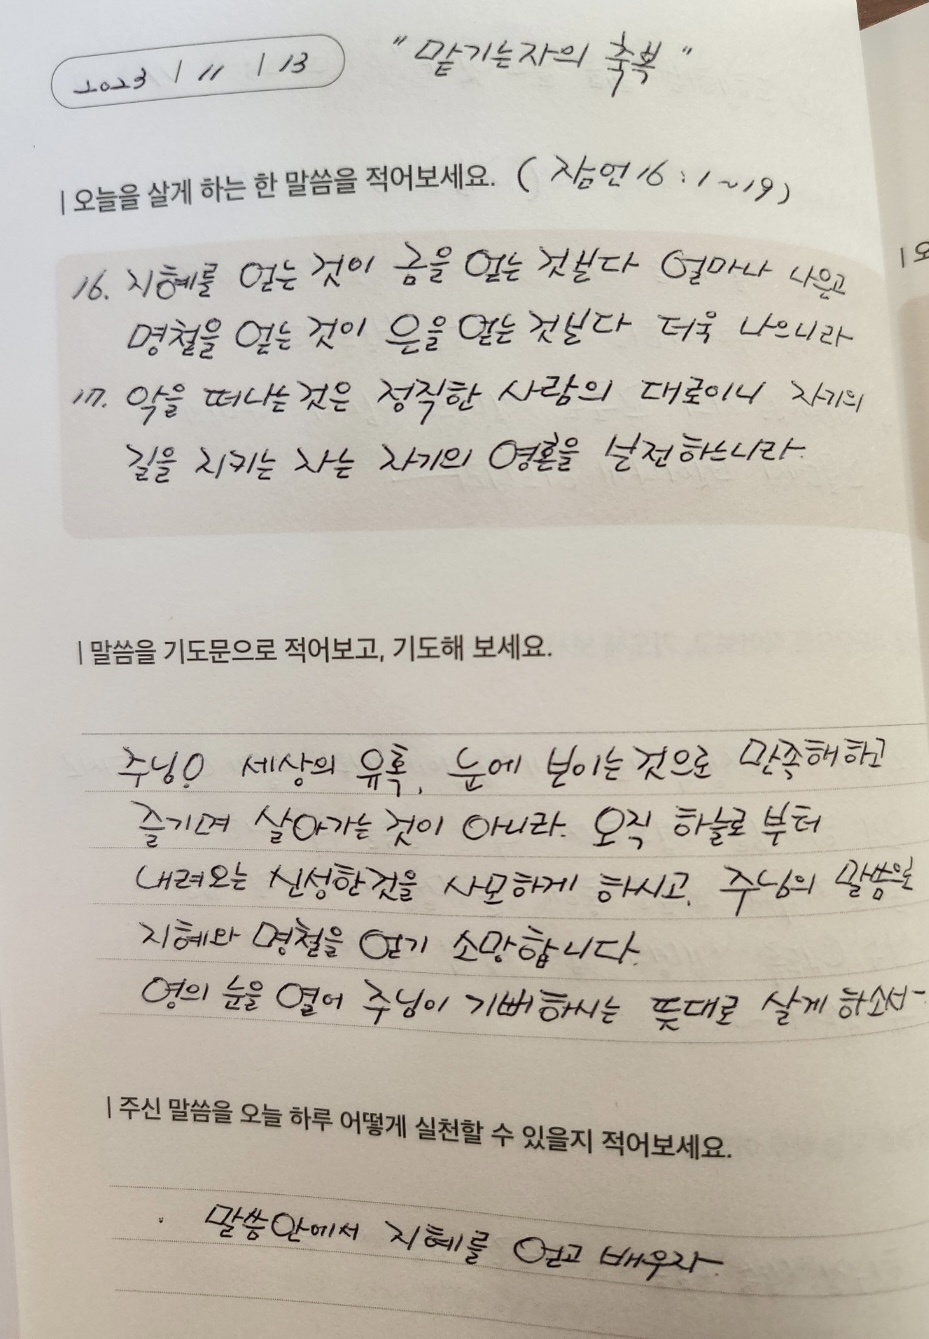 2023 / 11 / 13
"맡기는자의 축복"
| 오늘을 살게 하는 한 말씀을 적어보세요. (잠언 16 : 1~19)
16. 지혜를 얻는 것이 금을 얻는 것보다 얼마나 나은고
명철을 얻는 것이 은을 얻는 것보다 더욱 나으니라
17. 악을 떠나는 것은 정직한 사람의 대로이니 자기의
길을 지키는 자는 자기의 영혼을 보전하느니라.
| 말씀을 기도문으로 적어보고, 기도해 보세요.
주님! 세상의 유혹, 눈에 보이는 것으로 만족해하고
즐기며 살아가는 것이 아니라. 오직 하늘로 부터
내려오는 신성한것을 사모하게 하시고, 주님의 말씀으로
지혜와 명철을 얻기 소망합니다.
영의 눈을 열어 주님이 기뻐하시는 뜻대로 살게 하소서-
| 주신 말씀을 오늘 하루 어떻게 실천할 수 있을지 적어보세요.
· 말씀안에서 지혜를 얻고 배우자.